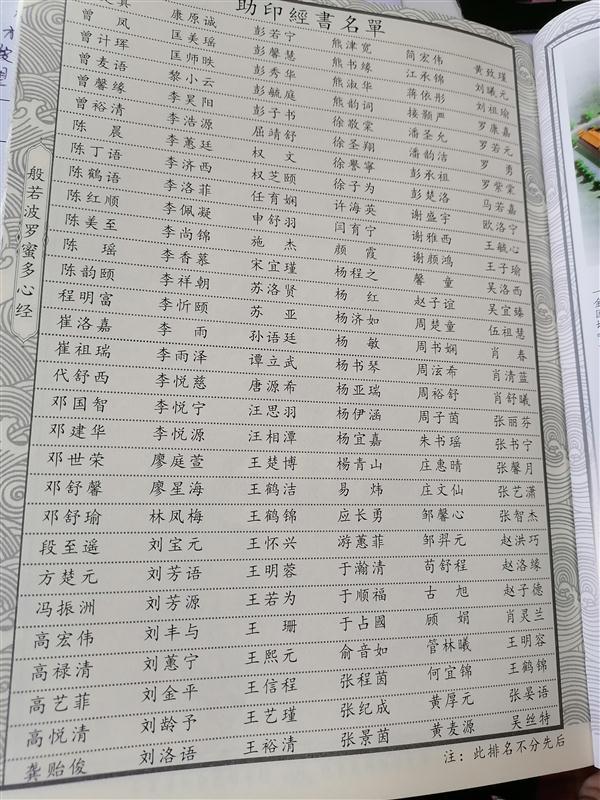 助印經書名單
康原诚 彭若宁 熊津宽 简宏伟 黄致瑾
曾凤 匡美瑶 彭馨慧 熊书缘 江承锦 刘曦元
曾计珲 匡师昳 彭秀华 熊淑华 蒋依彤 刘祖瑜
曾麦语 黎小云 彭毓庭 熊韵词 接颢严 罗康嘉
曾馨缘 李昊阳 彭子书 徐敬棠 潘圣允 罗若元
曾裕清 李浩源 屈靖舒 徐圣翔 潘韵洁 罗勇
陈晨 李蕙廷 权文 徐誉寧 彭承祖 罗紫棠
陈丁语 李济西 权芝颐 徐子为 彭楚洛 马若嘉
陈鹤语 李洛菲 任育娴 许海英 谢盛宇 欧洛宁
陈红顺 李佩凝 申舒羽 闫育宁 谢雅西 王毓心
陈美至 李尚锦 施杰 颜霞 谢颜鸿 王子瑜
陈瑶 李香慕 宋宜瑾 杨程之 馨童 吴洛西
陈韵颐 李祥朝 苏洛贤 杨红 赵子谊 吴宜臻
程明富 李忻颐 苏亚 杨济如 周楚童 伍祖慧
崔洛嘉 李雨 孙语廷 杨敏 周书娴 肖春
崔祖瑞 李雨泽 谭立武 杨书琴 周泫希 肖清蓝
代舒西 李悦慈 唐源希 杨亚瑞 周裕舒 肖舒曦
邓国智 李悦宁 汪思羽 杨伊涵 周子茵 张丽芬
邓建华 李悦源 汪相潭 杨宜嘉 朱书瑶 张书宁
邓世荣 廖庭萱 王楚博 楊青山 庄惠晴 张馨月
邓舒馨 廖星海 王鹤洁 易炜 庄文仙 张艺潇
邓舒瑜 林凤梅 王鹤锦 应长勇 邹馨心 张智杰
段至遥 刘宝元 王怀兴 游蕙菲 邹羿元 赵洪巧
方楚元 刘芳语 王明蓉 于瀚清 苟舒程 赵洛缘
冯振洲 刘芳源 王若为 于顺福 古旭 赵子德
高宏伟 刘丰与 王珊 于占國 顾娟 肖灵兰
高禄清 刘蕙宁 王熙元 俞音如 管林曦 王明容
高艺菲 刘金平 王信程 张程茵 何宜锦 王鹤锦
高悦清 刘龄予 王艺瑾 张纪成 黄厚元 张晏语
龚贻俊 刘洛语 王裕清 张景茵 黄麦源 吴丝特
注：此排名不分先后
般若波罗蜜多心经